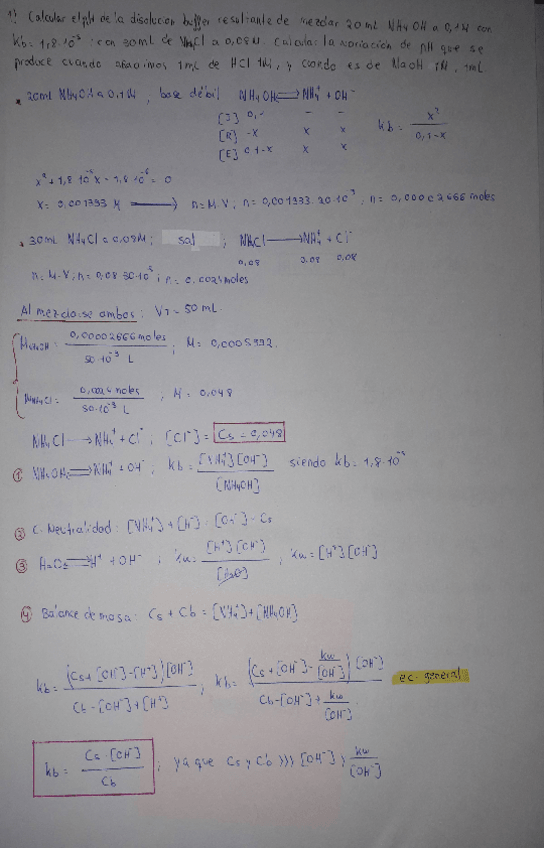 1) Calcular el pH de la disolución buffer resultante de mezclar 20 mL NH4OH a 0,1M con
kb = 1,8·10⁻⁵ con 30mL de NH4Cl a 0,08M. Calcular la variación de pH que se
produce cuando añadimos 1mL de HCl 1M, y cuando es de NaOH 1M, 1mL.
* 20mL NH4OH a 0,1M, base débil NH4OH ⇌ NH4⁺ + OH⁻
[I] 0,1 - -
[R] -x x x
[E] 0,1-x x x
kb = x² / 0,1-x
x² + 1,8·10⁻⁵x - 1,8·10⁻⁶ = 0
x = 0,001333 M ⟶ n = M·V; n = 0,001333·20·10⁻³; n = 0,00002666 moles
* 30mL NH4Cl a 0,08M; sal; NH4Cl ⟶ NH4⁺ + Cl⁻
0,08 0,08 0,08
n = M·V; n = 0,08·30·10⁻³; n = 0,0024 moles
Al mezclarse ambos: VT = 50 mL
MNH4OH = 0,00002666 moles / 50·10⁻³ L; M = 0,0005332.
MNH4Cl = 0,0024 moles / 50·10⁻³ L; M = 0,048
NH4Cl ⟶ NH4⁺ + Cl⁻; [Cl⁻] = Cs = 0,048
① NH4OH ⇌ NH4⁺ + OH⁻; kb = [NH4⁺][OH⁻] / [NH4OH] siendo kb = 1,8·10⁻⁵
② C. Neutralidad: [NH4⁺] + [H⁻] = [OH⁻] - Cs
③ H2O ⇌ H⁺ + OH⁻; kw = [H⁺][OH⁻] / [H2O]; kw = [H⁺][OH⁻]
④ Balance de masa: Cs + Cb = [NH4⁺] + [NH4OH]
kb = (Cs + [OH⁻] - [H⁺])[OH⁻] / Cb - [OH⁻] + [H⁺]; kb = (Cs + [OH⁻] - kw/[OH⁻])[OH⁻] / Cb - [OH⁻] + kw/[OH⁻] ec. general
kb = Cs·[OH⁻] / Cb; ya que Cs y Cb >>> [OH⁻] y kw/[OH⁻]